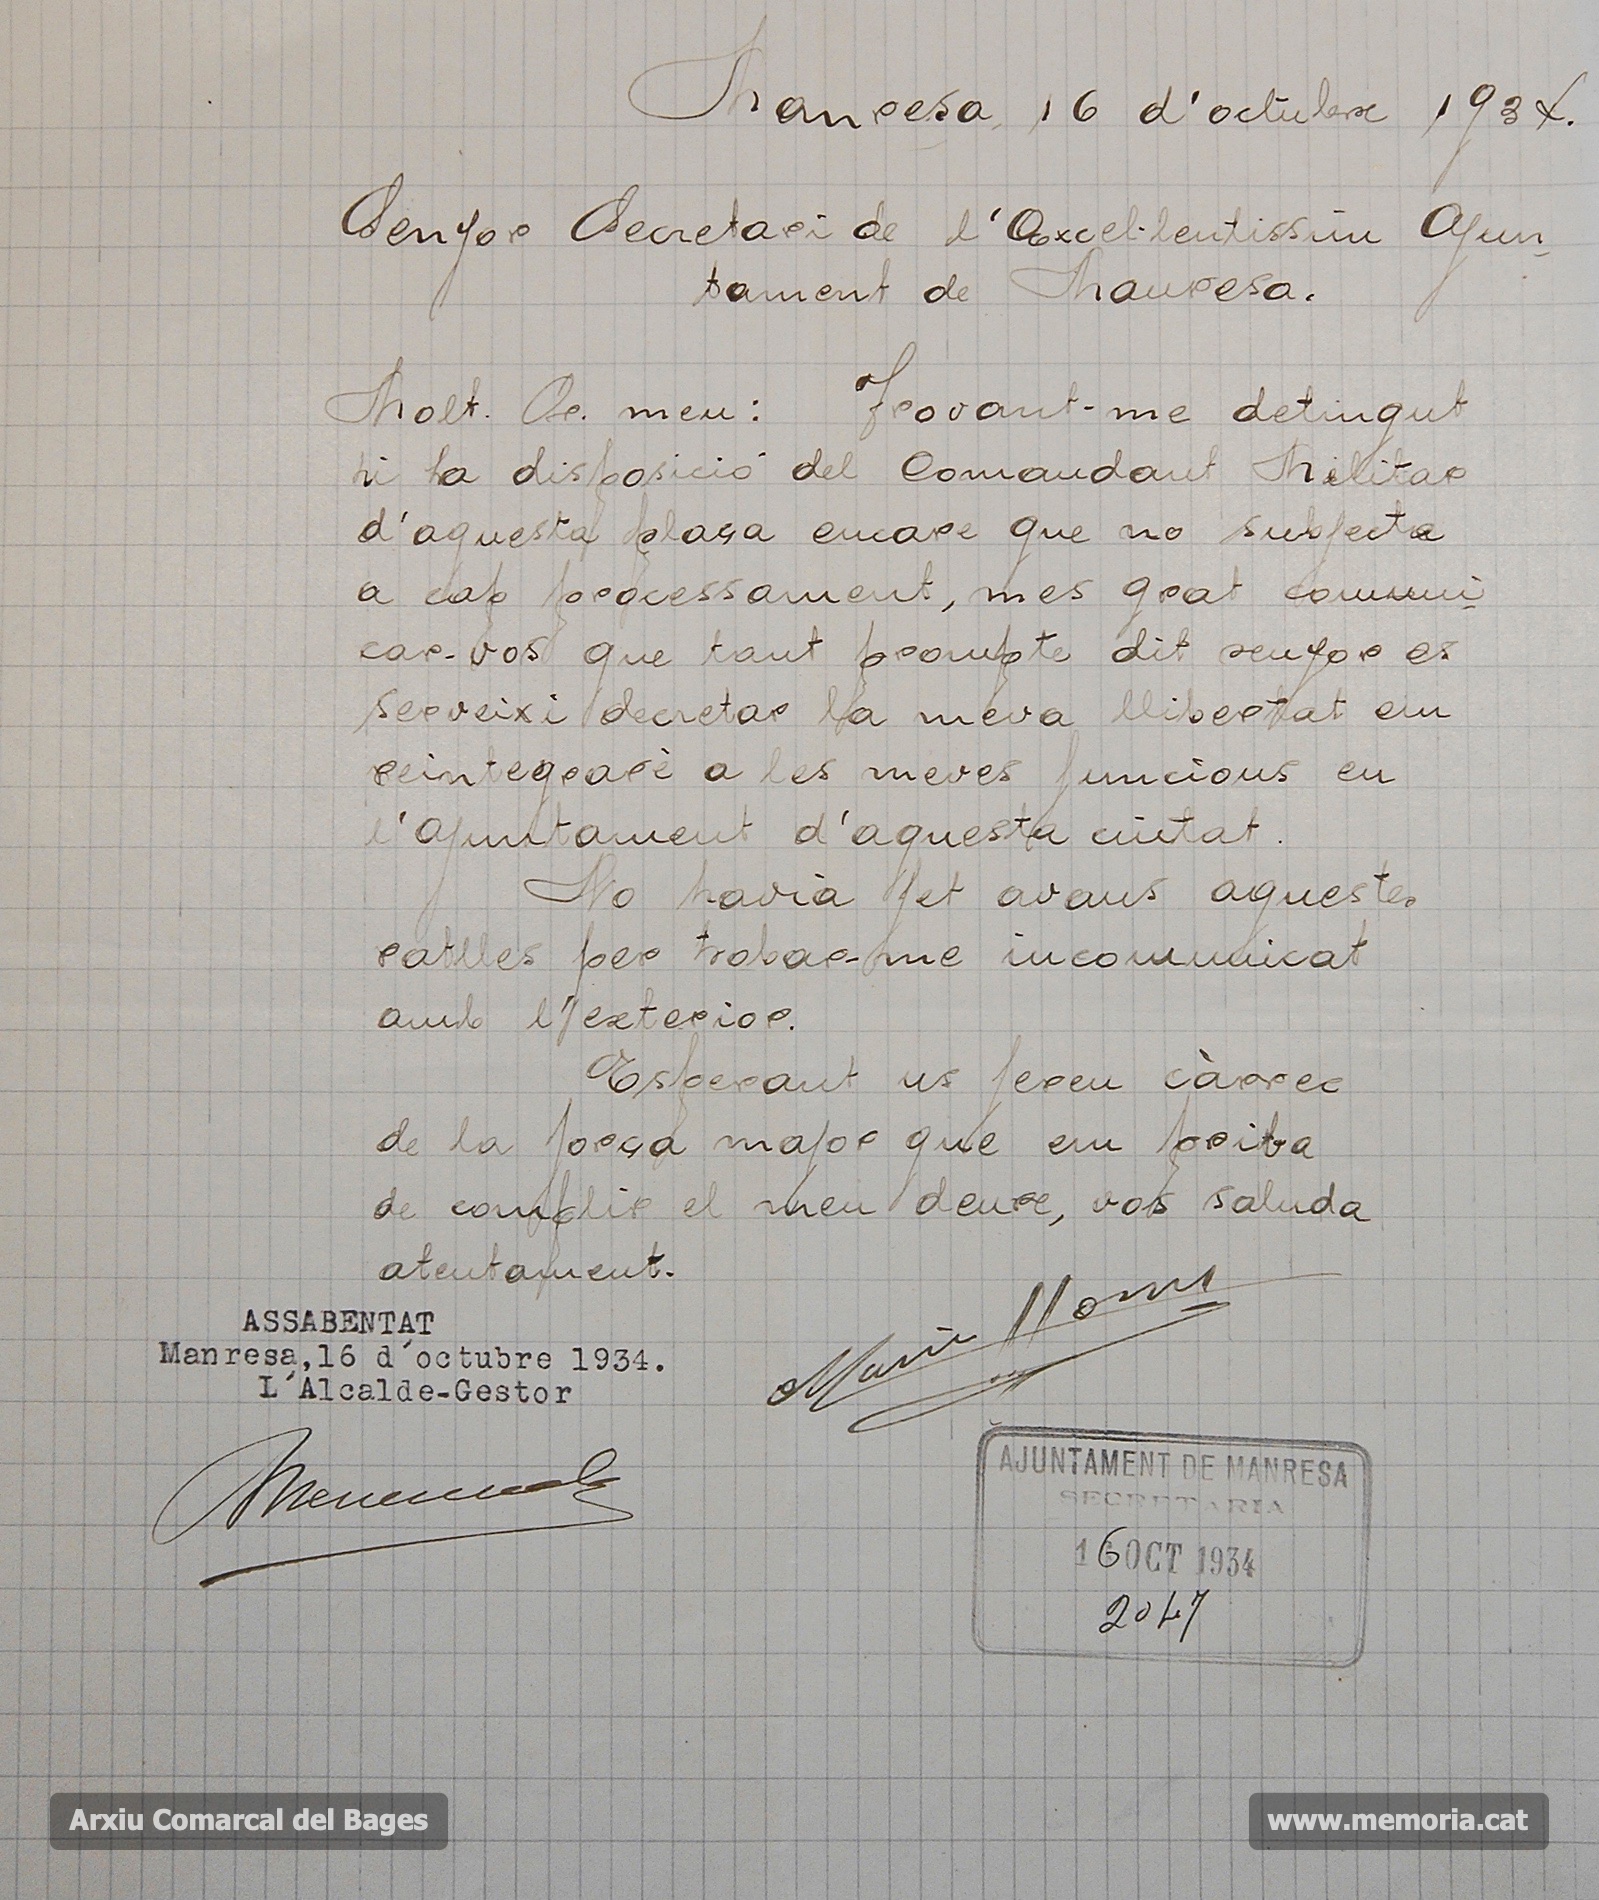 Manresa, 16 d'octubre 1934.
Senyor Secretari de l'Excel·lentissim Ajun-
tament de Manresa.
Molt Sr. meu: Trovant-me detingut
a disposició del Comandant Militar
d'aquesta plaça encare que no subjecte
a cap processament, mes grat comuni-
car-vos que tant prompte dit senyor es
serveixi decretar la meva llibertat em
reintegraré a les meves funcions en
l'Ajuntament d'aquesta ciutat.
No havia fet avans aquestes
ratlles per trobar-me incomunicat
amb l'exterior.
Esperant us fereu càrrec
de la força major que em priva
de complir el meu deure, vos saluda
atentament.
ASSABENTAT
Manresa,16 d´octubre 1934.
L´Alcalde-Gestor
AJUNTAMENT DE MANRESA
SECRETARIA
16 OCT 1934
2047
Arxiu Comarcal del Bages
www.memoria.cat